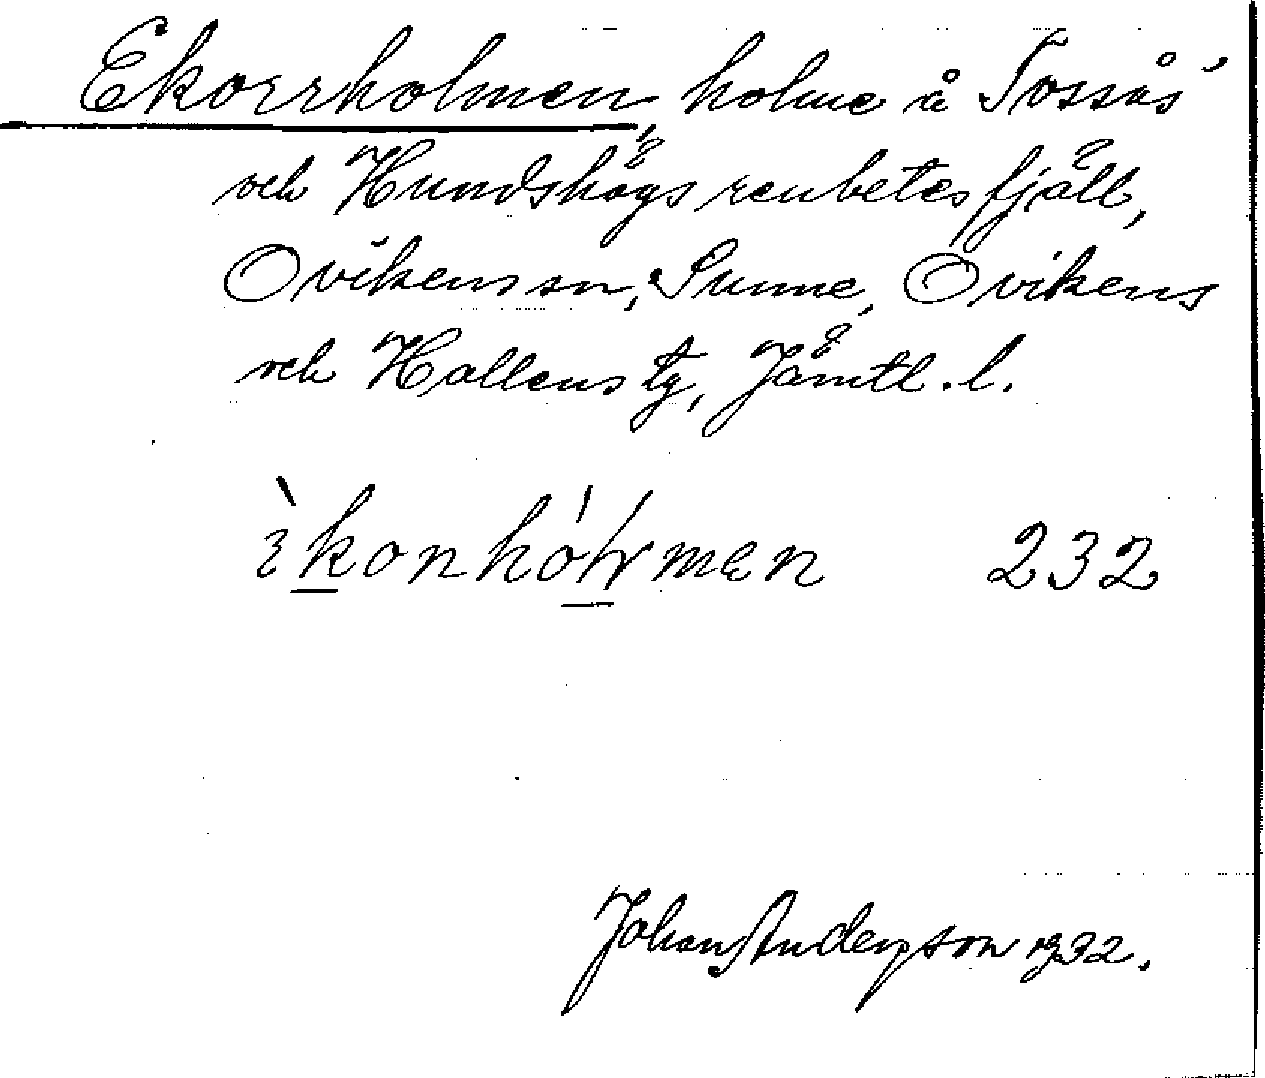 Ekorrholmen, holme å Tossås'
och Hundshögs renbetesfjäll,
Ovikens sn, Sunne, Ovikens
och Hallens tg, Jämtl. l.
ìkonhó men 232
Johan Anderson 1932.